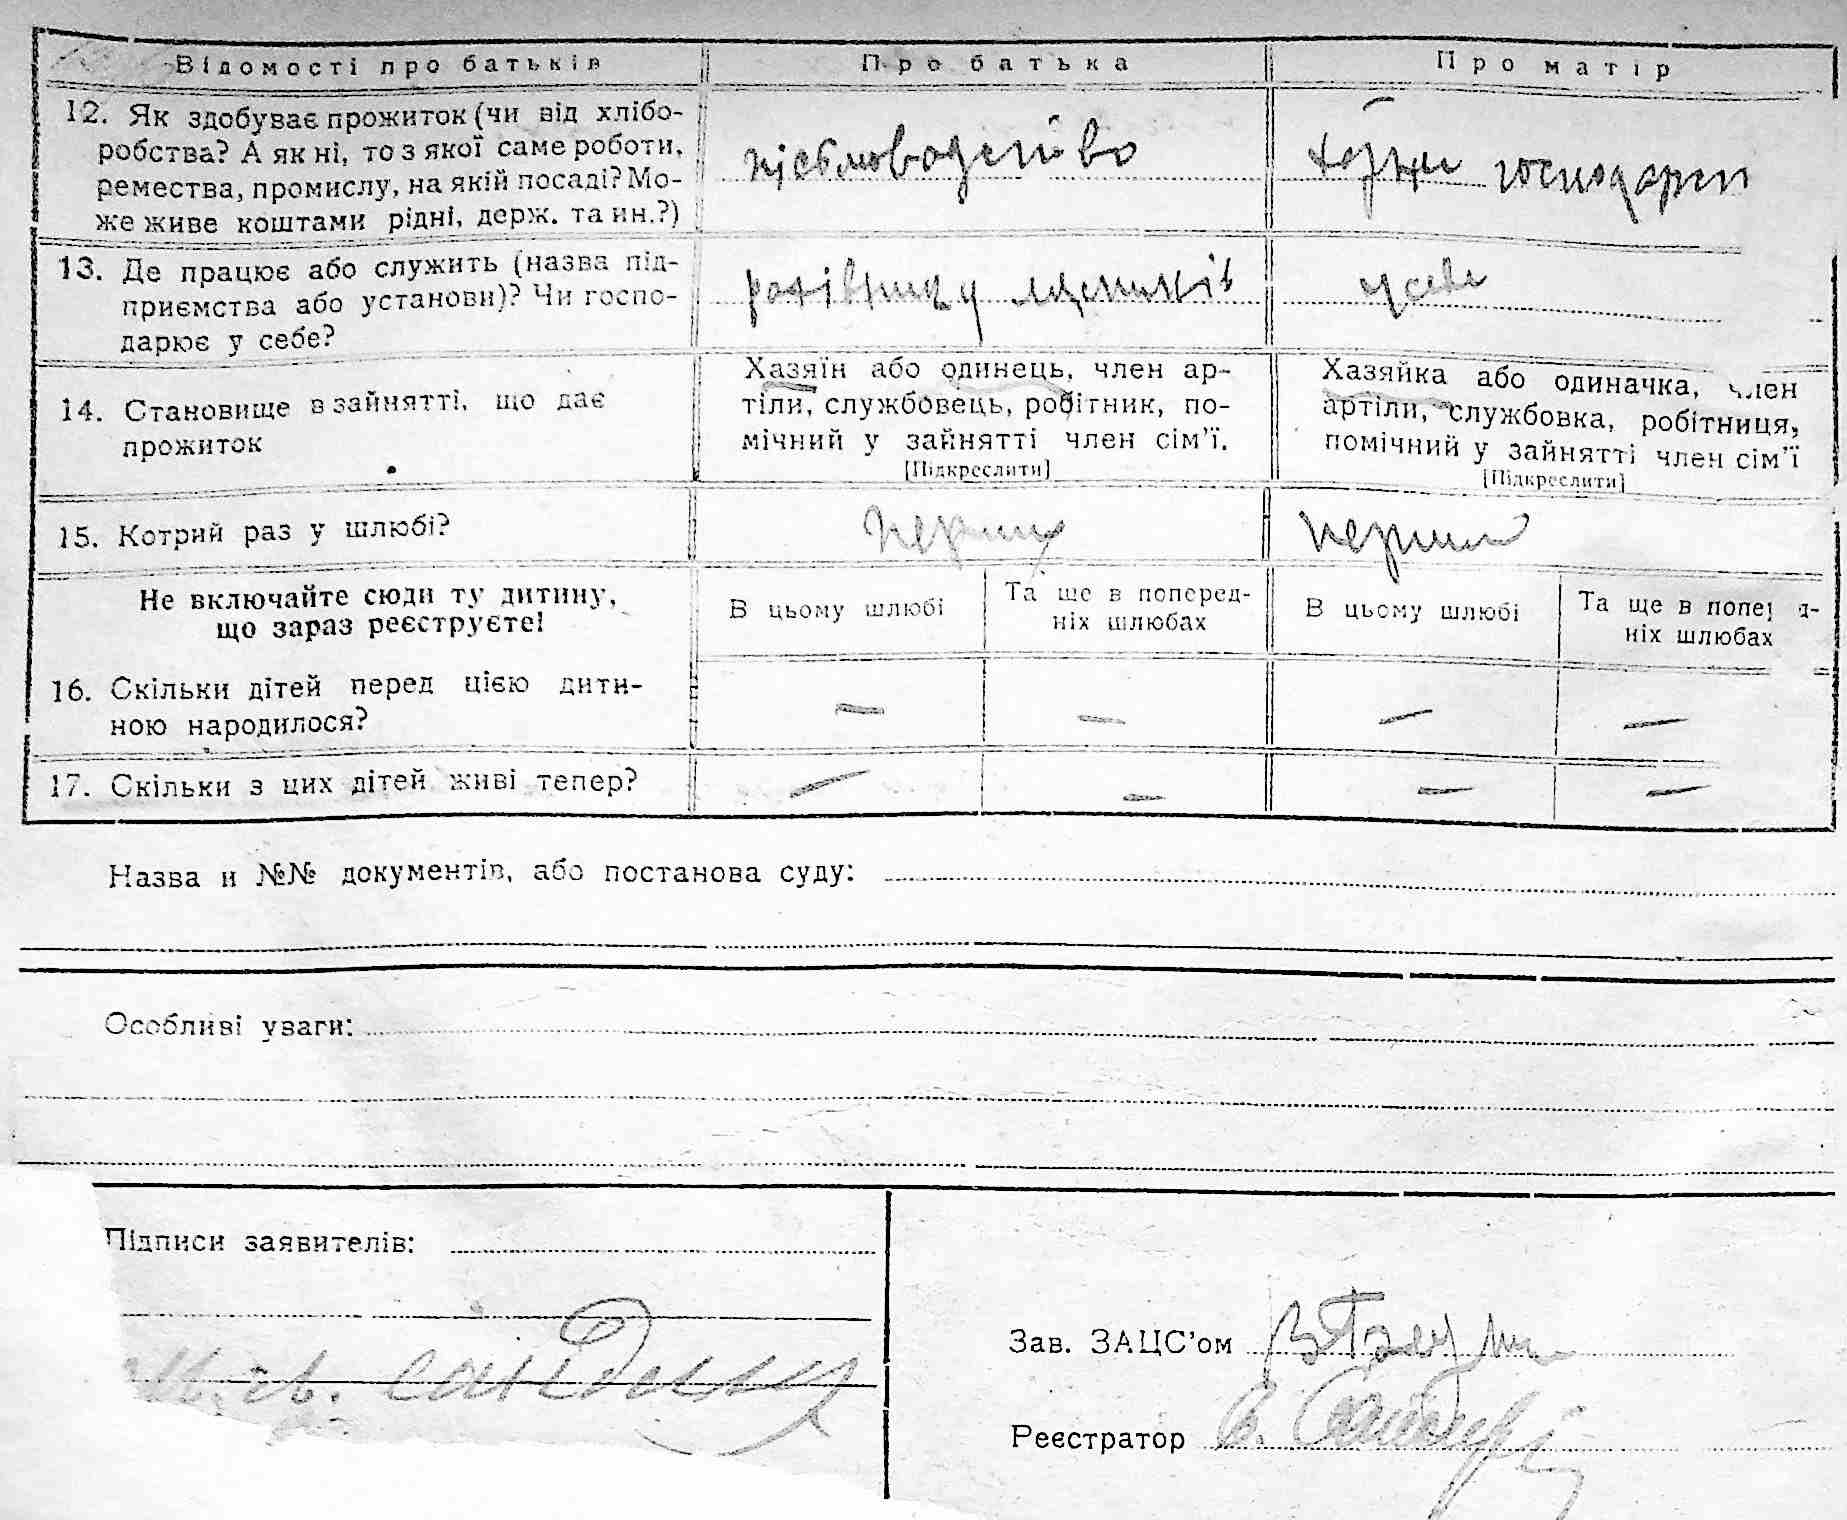 Відомості про батьків
Про батька
Про матір
12. Як здобуває прожиток (чи від хлібо-
робства? А як ні, то з якої саме роботи,
ремества, промислу, на якій посаді? Мо-
же живе коштами рідні, держ. та ин.?)
господарст
13. Де працює або служить (назва під-
приємства або установи)? Чи госпо-
дарює у себе?
у себе
14. Становище в зайнятті, що дає
прожиток
Хазяїн або одинець, член ар-
тіли, службовець, робітник, по-
мічний у зайнятті член сім'ї.
[Підкреслити]
Хазяйка або одиначка, член
артіли, службовка, робітниця,
помічний у зайнятті член сім'ї
[Підкреслити]
15. Котрий раз у шлюбі?
перший
перший
Не включайте сюди ту дитину,
що зараз реєструєте!
В цьому шлюбі
Та ще в поперед-
ніх шлюбах
В цьому шлюбі
Та ще в попе д-
ніх шлюбах
16. Скільки дітей перед цією дити-
ною народилося?
— — — —
17. Скільки з цих дітей живі тепер?
— — — —
Назва и №№ документів, або постанова суду:
Особливі уваги:
Підписи заявителів:
Зав. ЗАЦС'ом
Реєстратор